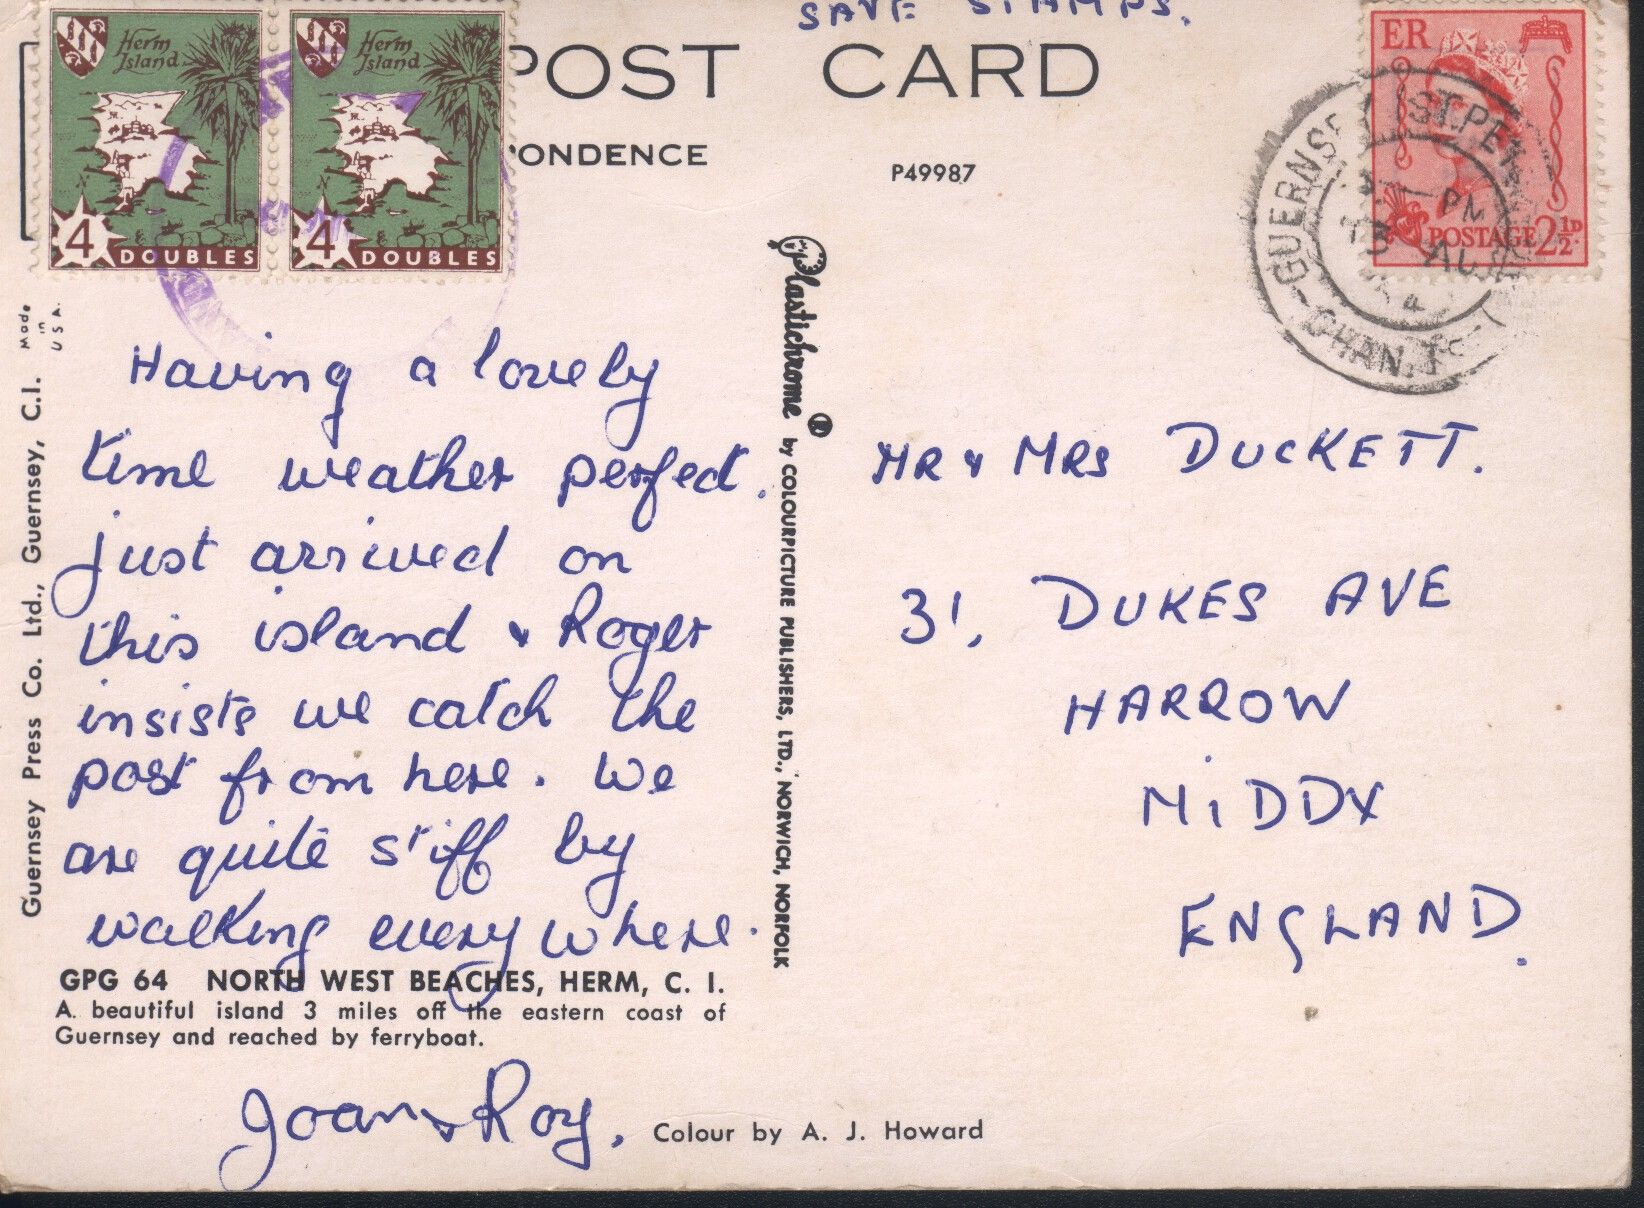 SAVE STAMPS.
POST CARD
ONDENCE
P49987
Herm
Island
4 DOUBLES
Herm
Island
4 DOUBLES
ER
POSTAGE 2½D
GUERNSE
ST.PE
PM
AU
CHAN.
Made
in
U S A.
Guernsey Press Co. Ltd., Guernsey, C.I.
Having a lovely
time weather perfect.
just arrived on
this island & Roger
insists we catch the
post from here. We
are quite stiff by
walking everywhere.
GPG 64 NORTH WEST BEACHES, HERM, C. I.
A. beautiful island 3 miles off the eastern coast of
Guernsey and reached by ferryboat.
Joan & Roy.
Colour by A. J. Howard
Plastichrome ® by COLOURPICTURE PUBLISHERS, LTD., NORWICH, NORFOLK
MR & MRS DUCKETT.
31, DUKES AVE
HARROW
MIDDX
ENGLAND.